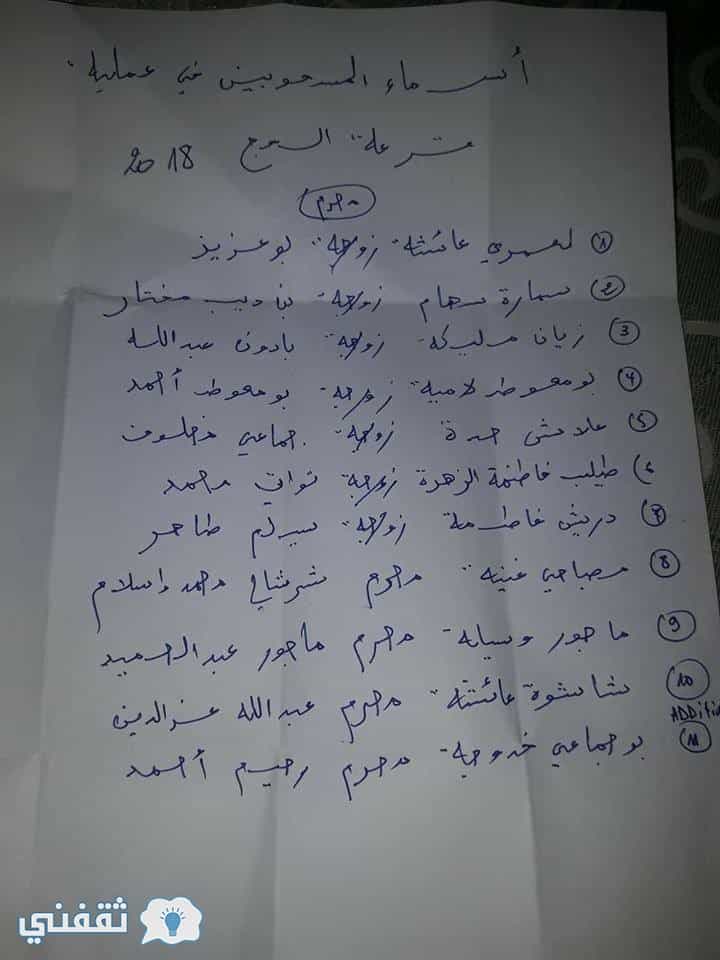 أسماء المسحوبين في عملية
قرعة الحج 2018
محرم
1 لعمري عائشة زوجة بوعزيز
2 سمارة سهام زوجة بن ديب مختار
3 زيان مليكة زوجة بادون عبد الله
4 بومعوط لامية زوجة بومعوط أحمد
5 علاش حدة زوجة جماعي مخلوف
6 طيلب فاطمة الزهرة زوجة تواتي محمد
7 دريش فاطمة زوجة طاهر
8 مصباحي غنية محرم شرشالي محمد إسلام
9 ماجور وسيلة محرم ماجور عبد الحميد
10 شاشوة عائشة محرم عبد الله عز الدين
ADDitio
11 بوجماعي خدوجة محرم رحيم أحمد
ثقفني